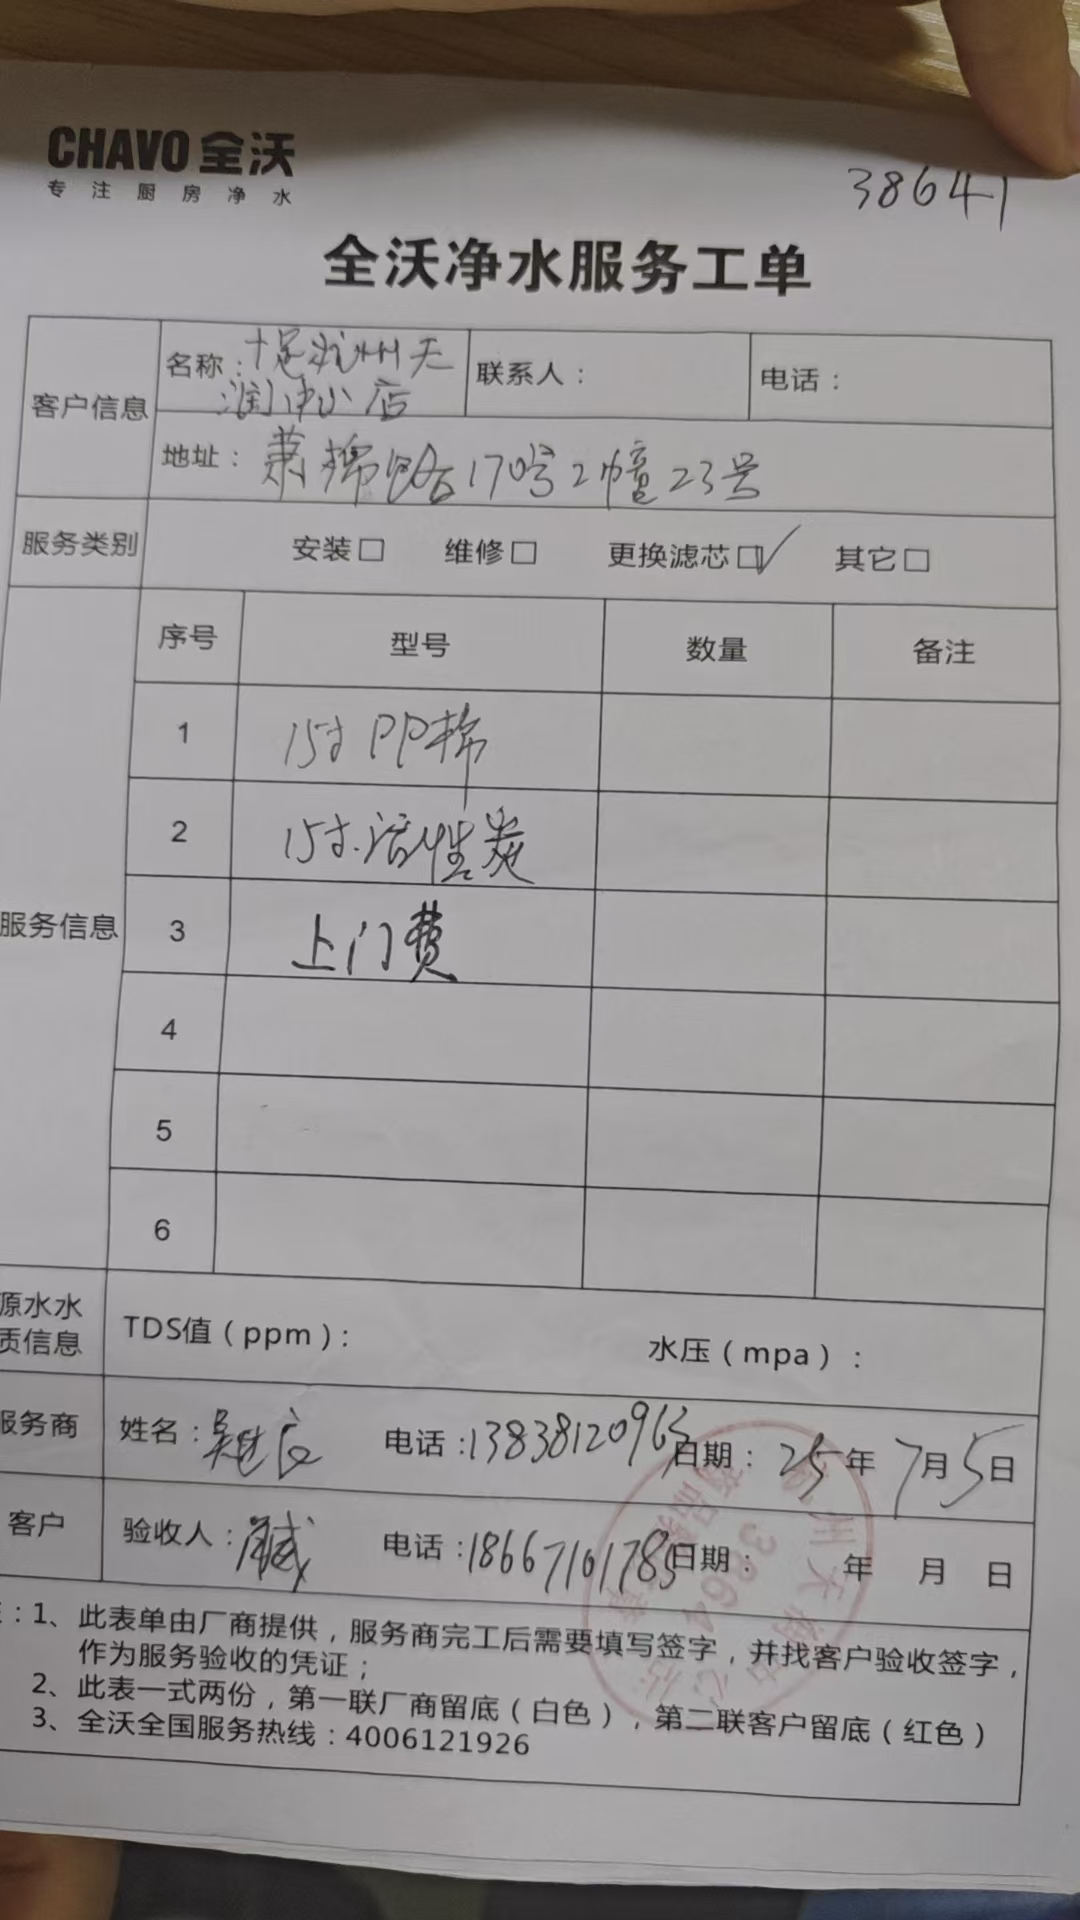 CHAVO 全沃
专注厨房净水
38641
全沃净水服务工单
客户信息
名称：十足杭州天
润中心店
联系人：
电话：
地址：萧棉路170号2幢23号
服务类别
安装□ 维修□ 更换滤芯□✓ 其它□
服务信息
序号 型号 数量 备注
1 15寸PP棉
2 15寸.活性炭
3 上门费
4
5
6
源水水
质信息
TDS值（ppm）：
水压（mpa）：
服务商
姓名： 电话：13838120963 日期：25年7月5日
客户
验收人： 电话：18667101785 日期： 年 月 日
：1、此表单由厂商提供，服务商完工后需要填写签字，并找客户验收签字，
作为服务验收的凭证；
2、此表一式两份，第一联厂商留底（白色），第二联客户留底（红色）
3、全沃全国服务热线：4006121926